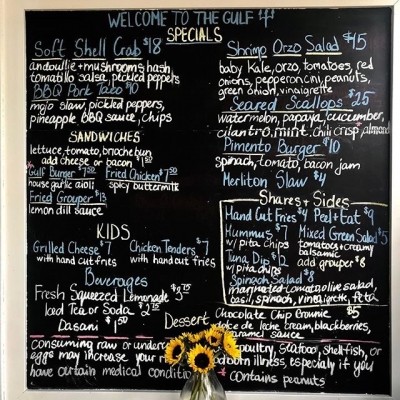 WELCOME TO THE GULF
SPECIALS
Soft Shell Crab $18
andouille + mushrooms hash
tomatillo salsa, pickled peppers
BBQ Pork Taco $10
mojo slaw, pickled peppers,
pineapple BBQ sauce, chips
SANDWICHES
lettuce, tomato, brioche bun
add cheese or bacon $1.50
*Gulf Burger $7.50
house garlic aioli
Fried Chicken $7.50
spicy buttermilk
Fried Grouper $13
lemon dill sauce
KIDS
Grilled Cheese $7
with hand cut fries
Chicken Tenders $7
with hand cut fries
Beverages
Fresh Squeezed Lemonade
Iced Tea or Soda
Dasani $1.50
Shrimp Orzo Salad $15
baby kale, orzo, tomatoes, red
onions, pepperoncini, peanuts,
green onion, vinaigrette
Seared Scallops $25
watermelon, papaya, cucumber,
cilantro, mint, chili crisp, almond
Pimento Burger $10
spinach, tomato, bacon jam
Merliton Slaw $4
Shares + Sides
Hand Cut Fries $4 Peel + Eat $9
Hummus $7
w/ pita chips
Mixed Green Salad $5
tomatoes + creamy
balsamic
add grouper $8
Tuna Dip $12
w/ pita chips
Spinach Salad $8
marinated tomato, olive salad,
basil, spinach, vinaigrette, feta
Dessert
Chocolate Chip Brownie $5
dolce de leche cream, blackberries,
caramel sauce
consuming raw or
poultry, seafood, shellfish, or
eggs may increase your
illness, especially if you
have certain medical
*contains peanuts